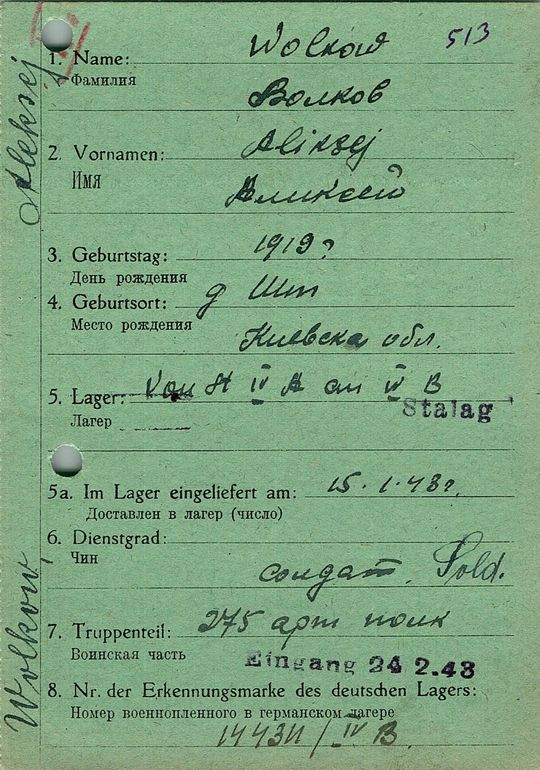 513
1. Name: Wolkow
Фамилия
Волков
2. Vornamen: Aliksej
Имя
Аликсей
3. Geburtstag: 1919г
День рождения
4. Geburtsort: д
Место рождения
Киевская обл.
5. Lager: Von St IV A an IV B
Лагер
Stalag
5a. Im Lager eingeliefert am: 15.1.43г.
Доставлен в лагер (число)
6. Dienstgrad:
Чин
солдат. Sold.
7. Truppenteil: 275 арт полк
Воинская часть
Eingang 24 2.43
8. Nr. der Erkennungsmarke des deutschen Lagers:
Номер военнопленного в германском лагере
/ IV B.
Aleksej
Wolkow,